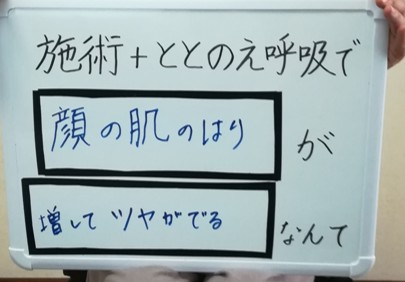 施術+ととのえ呼吸で
顔の肌のはりが
増して ツヤがでる なんて